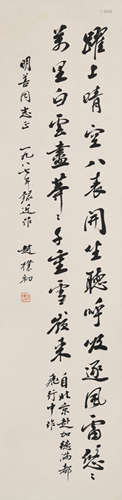 躍上晴空八表開坐聽呼吸逐風雷悠々
萬里白雲盡莽々千重雪嶺来自北京赴加德滿都
飛行中作
明善同志正一九八七年録近作
趙樸初